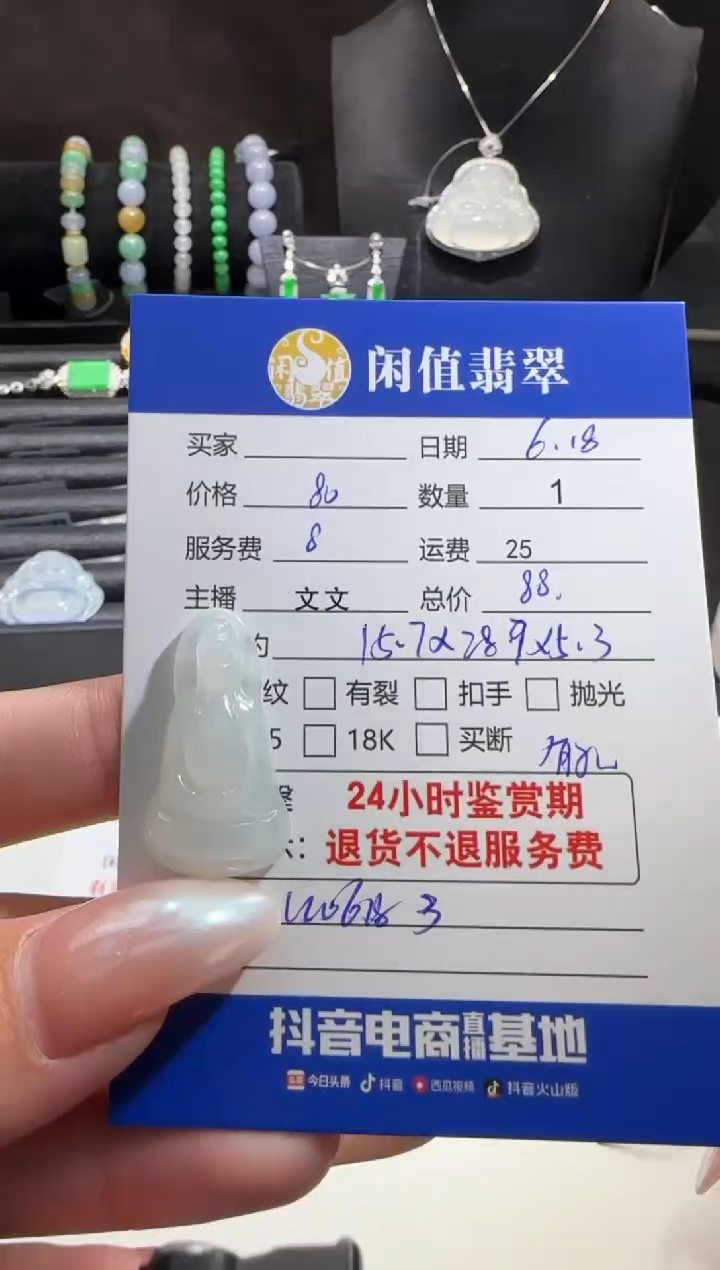 闲值翡翠
闲值翡翠
买家 日期 6.18
价格 80 数量 1
服务费 8 运费 25
主播 文文 总价 88.
约 15.7x28.9x5.3
纹 □ 有裂 □ 扣手 □ 抛光
5 □ 18K □ 买断
24小时鉴赏期
：退货不退服务费
3
抖音电商直播基地
今日头条 抖音 西瓜视频 抖音火山版